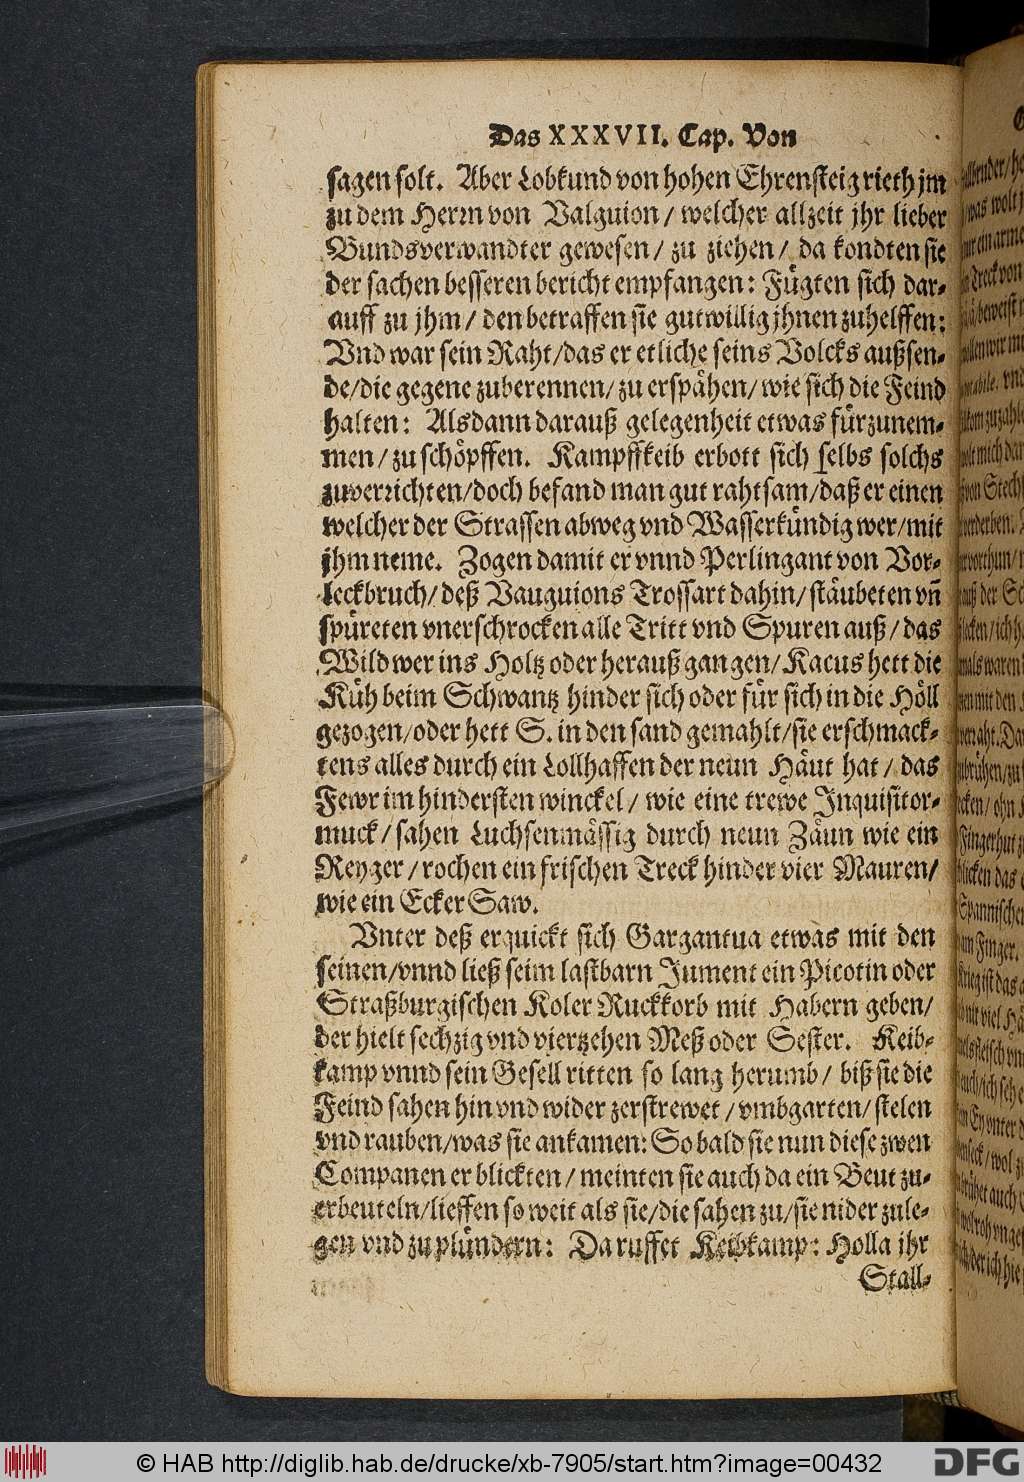 Das XXXVII. Cap. Von
sagen solt. Aber Lobkund von hohen Ehrensteig rieth jm
zu dem Herrn von Valguion / welcher allzeit jhr lieber
Bundsverwandter gewesen / zu ziehen / da kondten sie
der sachen besseren bericht empfangen: Fügten sich dar-
auff zu jhm / den betraffen sie gutwillig jhnen zuhelffen:
Vnd war sein Raht / das er etliche seins Volcks außsen-
de / die gegene zuberennen / zu erspähen / wie sich die Feind
halten: Alsdann darauß gelegenheit etwas fürzunem-
men / zu schöpffen. Kampffkeib erbott sich selbs solchs
zuverrichten / doch befand man gut rahtsam / daß er einen
welcher der Strassen abweg vnd Wasserkündig wer / mit
jhm neme. Zogen damit er vnnd Perlingant von Vor-
leckbruch / deß Vauguions Trossart dahin / stäubeten vñ
spüreten vnerschrocken alle Tritt vnd Spuren auß / das
Wild wer ins Holtz oder herauß gangen / Kacus hett die
Küh beim Schwantz hinder sich oder für sich in die Höll
gezogen / oder hett S. in den sand gemahlt / sie erschmack-
tens alles durch ein Lollhaffen der neun Häut hat / das
Fewr im hindersten winckel / wie eine trewe Inquisitor-
muck / sahen Luchsenmässig durch neun Zäun wie ein
Reyger / rochen ein frischen Treck hinder vier Mauren /
wie ein Ecker Saw.
Vnter deß erquickt sich Gargantua etwas mit den
seinen / vnnd ließ seim lastbarn Jument ein Picotin oder
Straßburgischen Koler Ruckkorb mit Habern geben /
der hielt sechzig vnd viertzehen Meß oder Sester. Keib-
kamp vnnd sein Gesell ritten so lang herumb / biß sie die
Feind sahen hin vnd wider zerstrewet / vmbgarten / stelen
vnd rauben / was sie ankamen: So bald sie nun diese zwen
Companen erblickten / meinten sie auch da ein Beut zu-
erbeuteln / lieffen so weit als sie / die sahen zu / sie nider zule-
gen vnd zu plündern: Da ruffet Keibkamp: Holla jhr
Stall-
© HAB http://diglib.hab.de/drucke/xb-7905/start.htm?image=00432
DFG